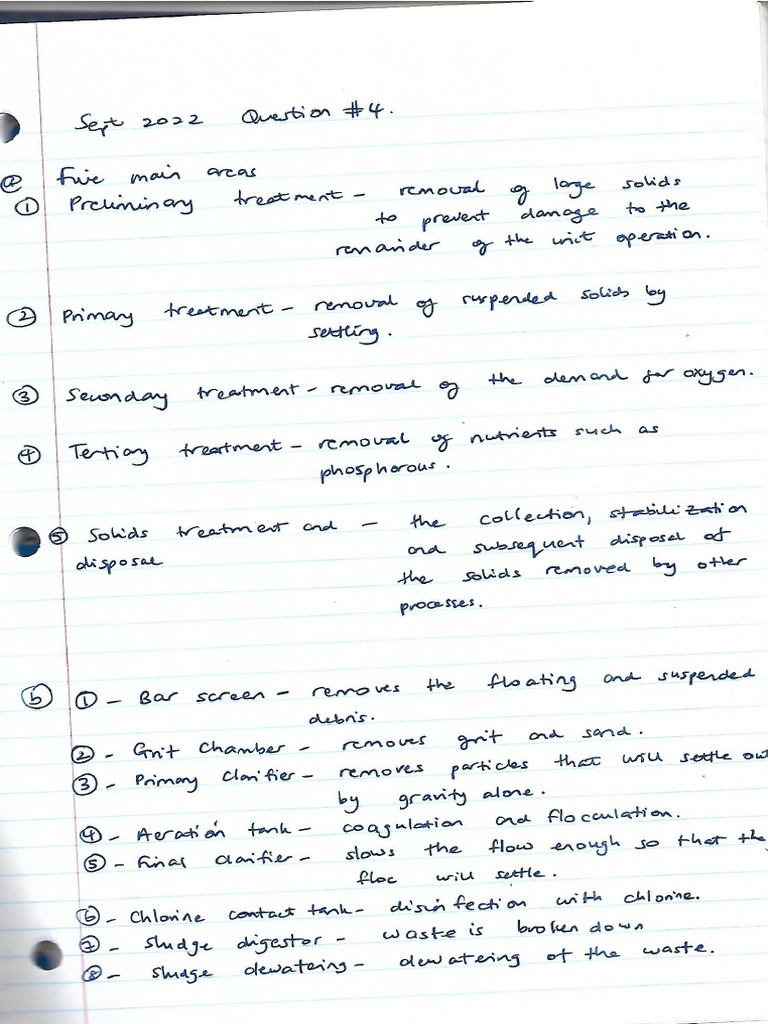 Sept 2022 Question #4.
(a) Five main areas
① Preliminary treatment - removal of large solids
to prevent damage to the
remainder of the unit operation.
② Primary treatment - removal of suspended solids by
settling.
③ Secondary treatment - removal of the demand for oxygen.
④ Tertiary treatment - removal of nutrients such as
phosphorous.
⑤ Solids treatment and - the collection, stabilization
disposal and subsequent disposal of
the solids removed by other
processes.
(b) ① - Bar screen - removes the floating and suspended
debris.
② - Grit Chamber - removes grit and sand.
③ - Primary Clarifier - removes particles that will settle out
by gravity alone.
④ - Aeration tank - coagulation and flocculation.
⑤ - Final clarifier - slows the flow enough so that the
floc will settle.
⑥ - Chlorine contact tank - disinfection with chlorine.
⑦ - Sludge digestor - waste is broken down
⑧ - Sludge dewatering - dewatering of the waste.